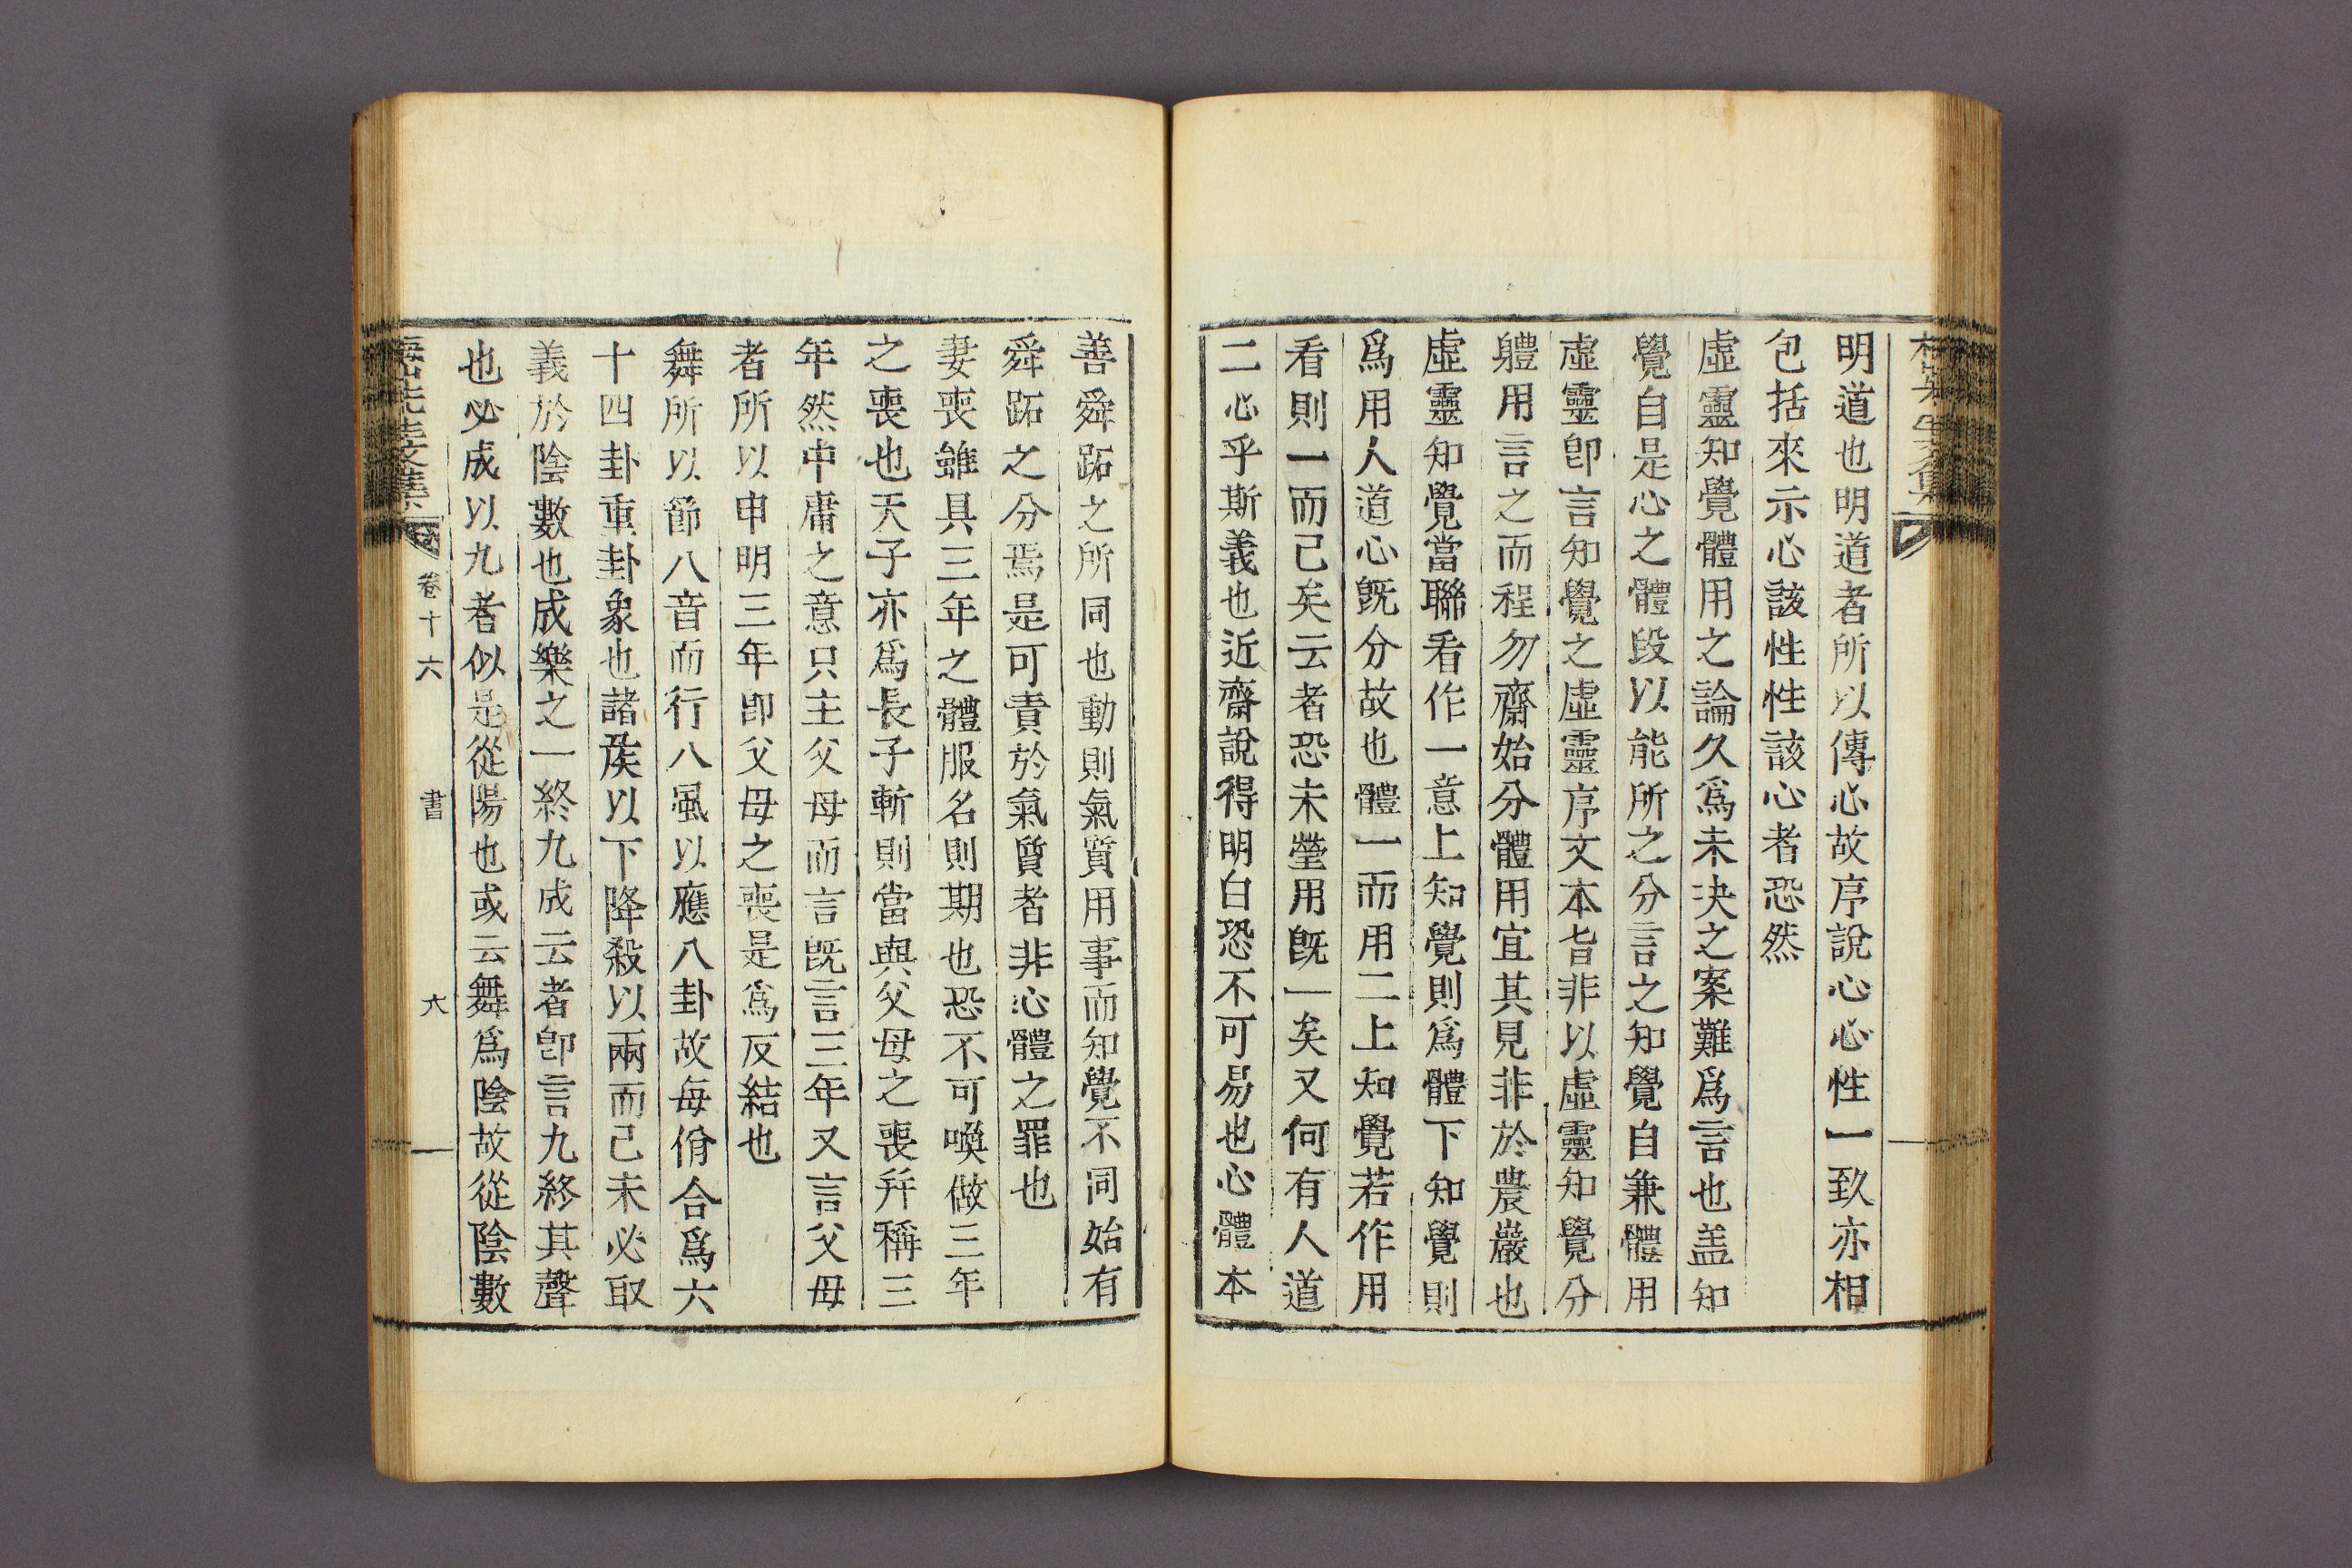 明道也明道者所以傳心故序說心心性一致亦相
包括來示心該性性該心者恐然
虛靈知覺體用之論久爲未决之案難爲言也盖知
覺自是心之體段以能所之分言之知覺自兼體用
虛靈卽言知覺之虛靈序文本旨非以虛靈知覺分
軆用言之而程勿齋始分體用宜其見非於農巖也
虛靈知覺當聯看作一意上知覺則爲體下知覺則
爲用人道心旣分故也體一而用二上知覺若作用
看則一而已矣云者恐未瑩用旣一矣又何有人道
二心乎斯義也近齋說得明白恐不可易也心體本
善舜跖之所同也動則氣質用事而知覺不同始有
舜跖之分焉是可責於氣質者非心體之罪也
妻喪雖具三年之體服名則期也恐不可喚做三年
之喪也天子亦爲長子斬則當與父母之喪幷稱三
年然中庸之意只主父母而言旣言三年又言父母
者所以申明三年卽父母之喪是爲反結也
舞所以節八音而行八風以應八卦故每佾合爲六
十四卦重卦象也諸矦以下降殺以兩而已未必取
義於陰數也成樂之一終九成云者卽言九終其聲
也必成以九者似是從陽也或云舞爲陰故從陰數
先生文集 卷十六 書 六